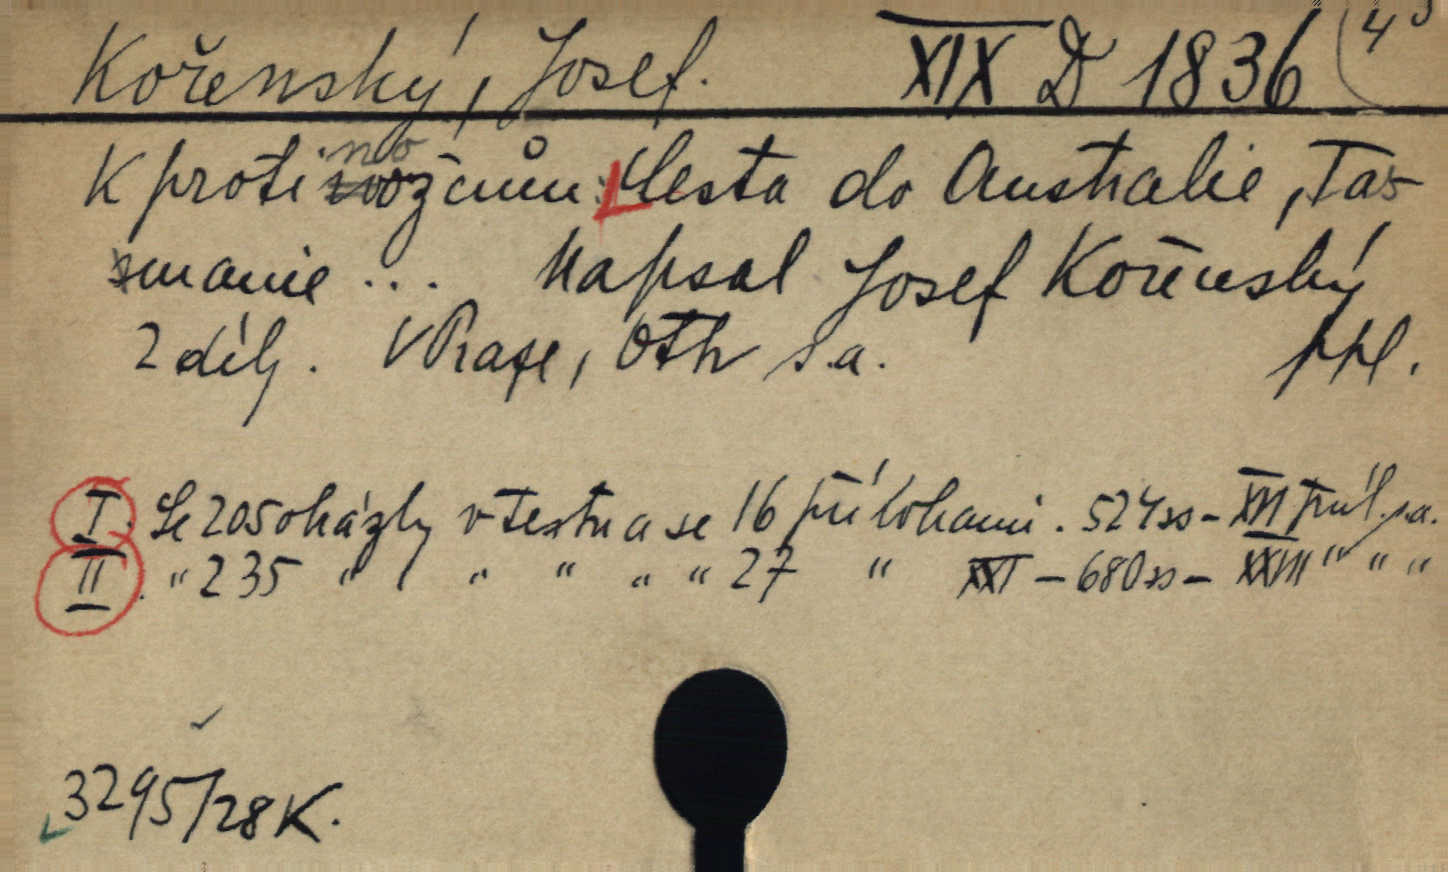 Kořenský, Josef. XIX D 1836
K protinožcům Cesta do Australie, Tas-
manie ... Napsal Josef Kořenský
2 díly. V Praze, Otto s.a. ppl.
I. Se 205 obrázky v textu a se 16 přílohami. 524 ss - XVI příl. s.a.
II. " 235 " " " " " 27 " XXI - 680 ss - XXVII " " "
3295/28 K.